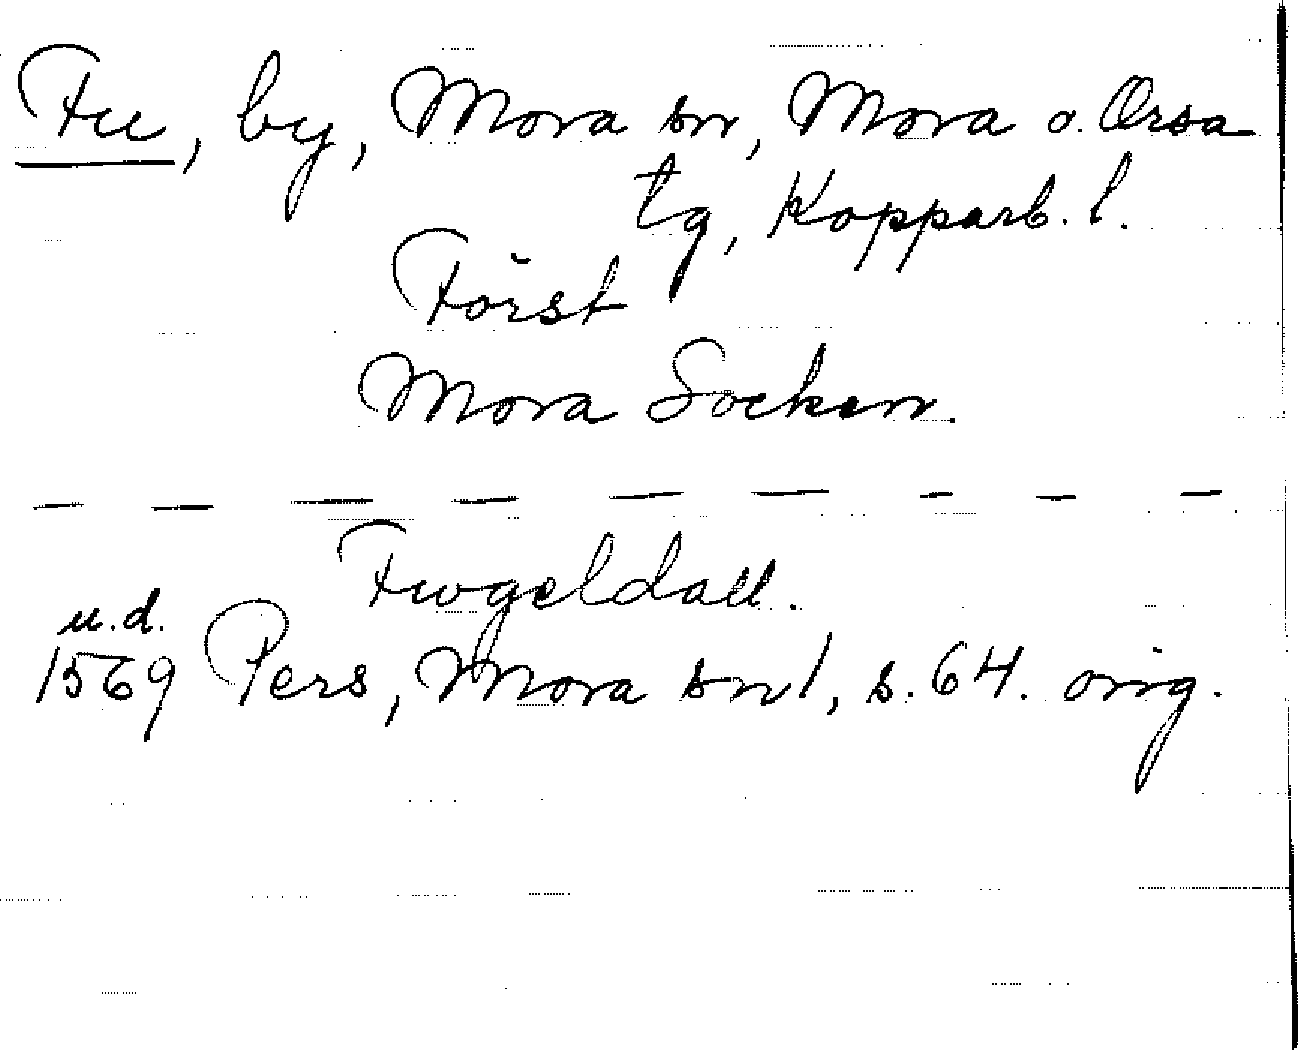 Fu, by, Mora sn, Mora o. Orsa
tg, Kopparb. l.
Först
Mora Socken.
Fwgeldall.
u.d.
1569 Pers, Mora snl, s. 64. orig.